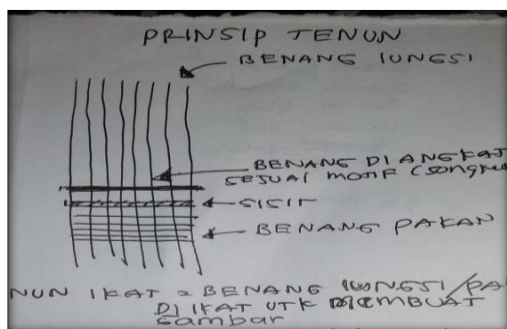 PRINSIP TENUN
BENANG LUNGSI
BENANG DI ANGKAT
SESUAI MOTIF (SONGKE
SISIR
BENANG PAKAN
NUN IKAT = BENANG LUNGSI/PA
DI IKAT UTK MEMBUAT
Gambar